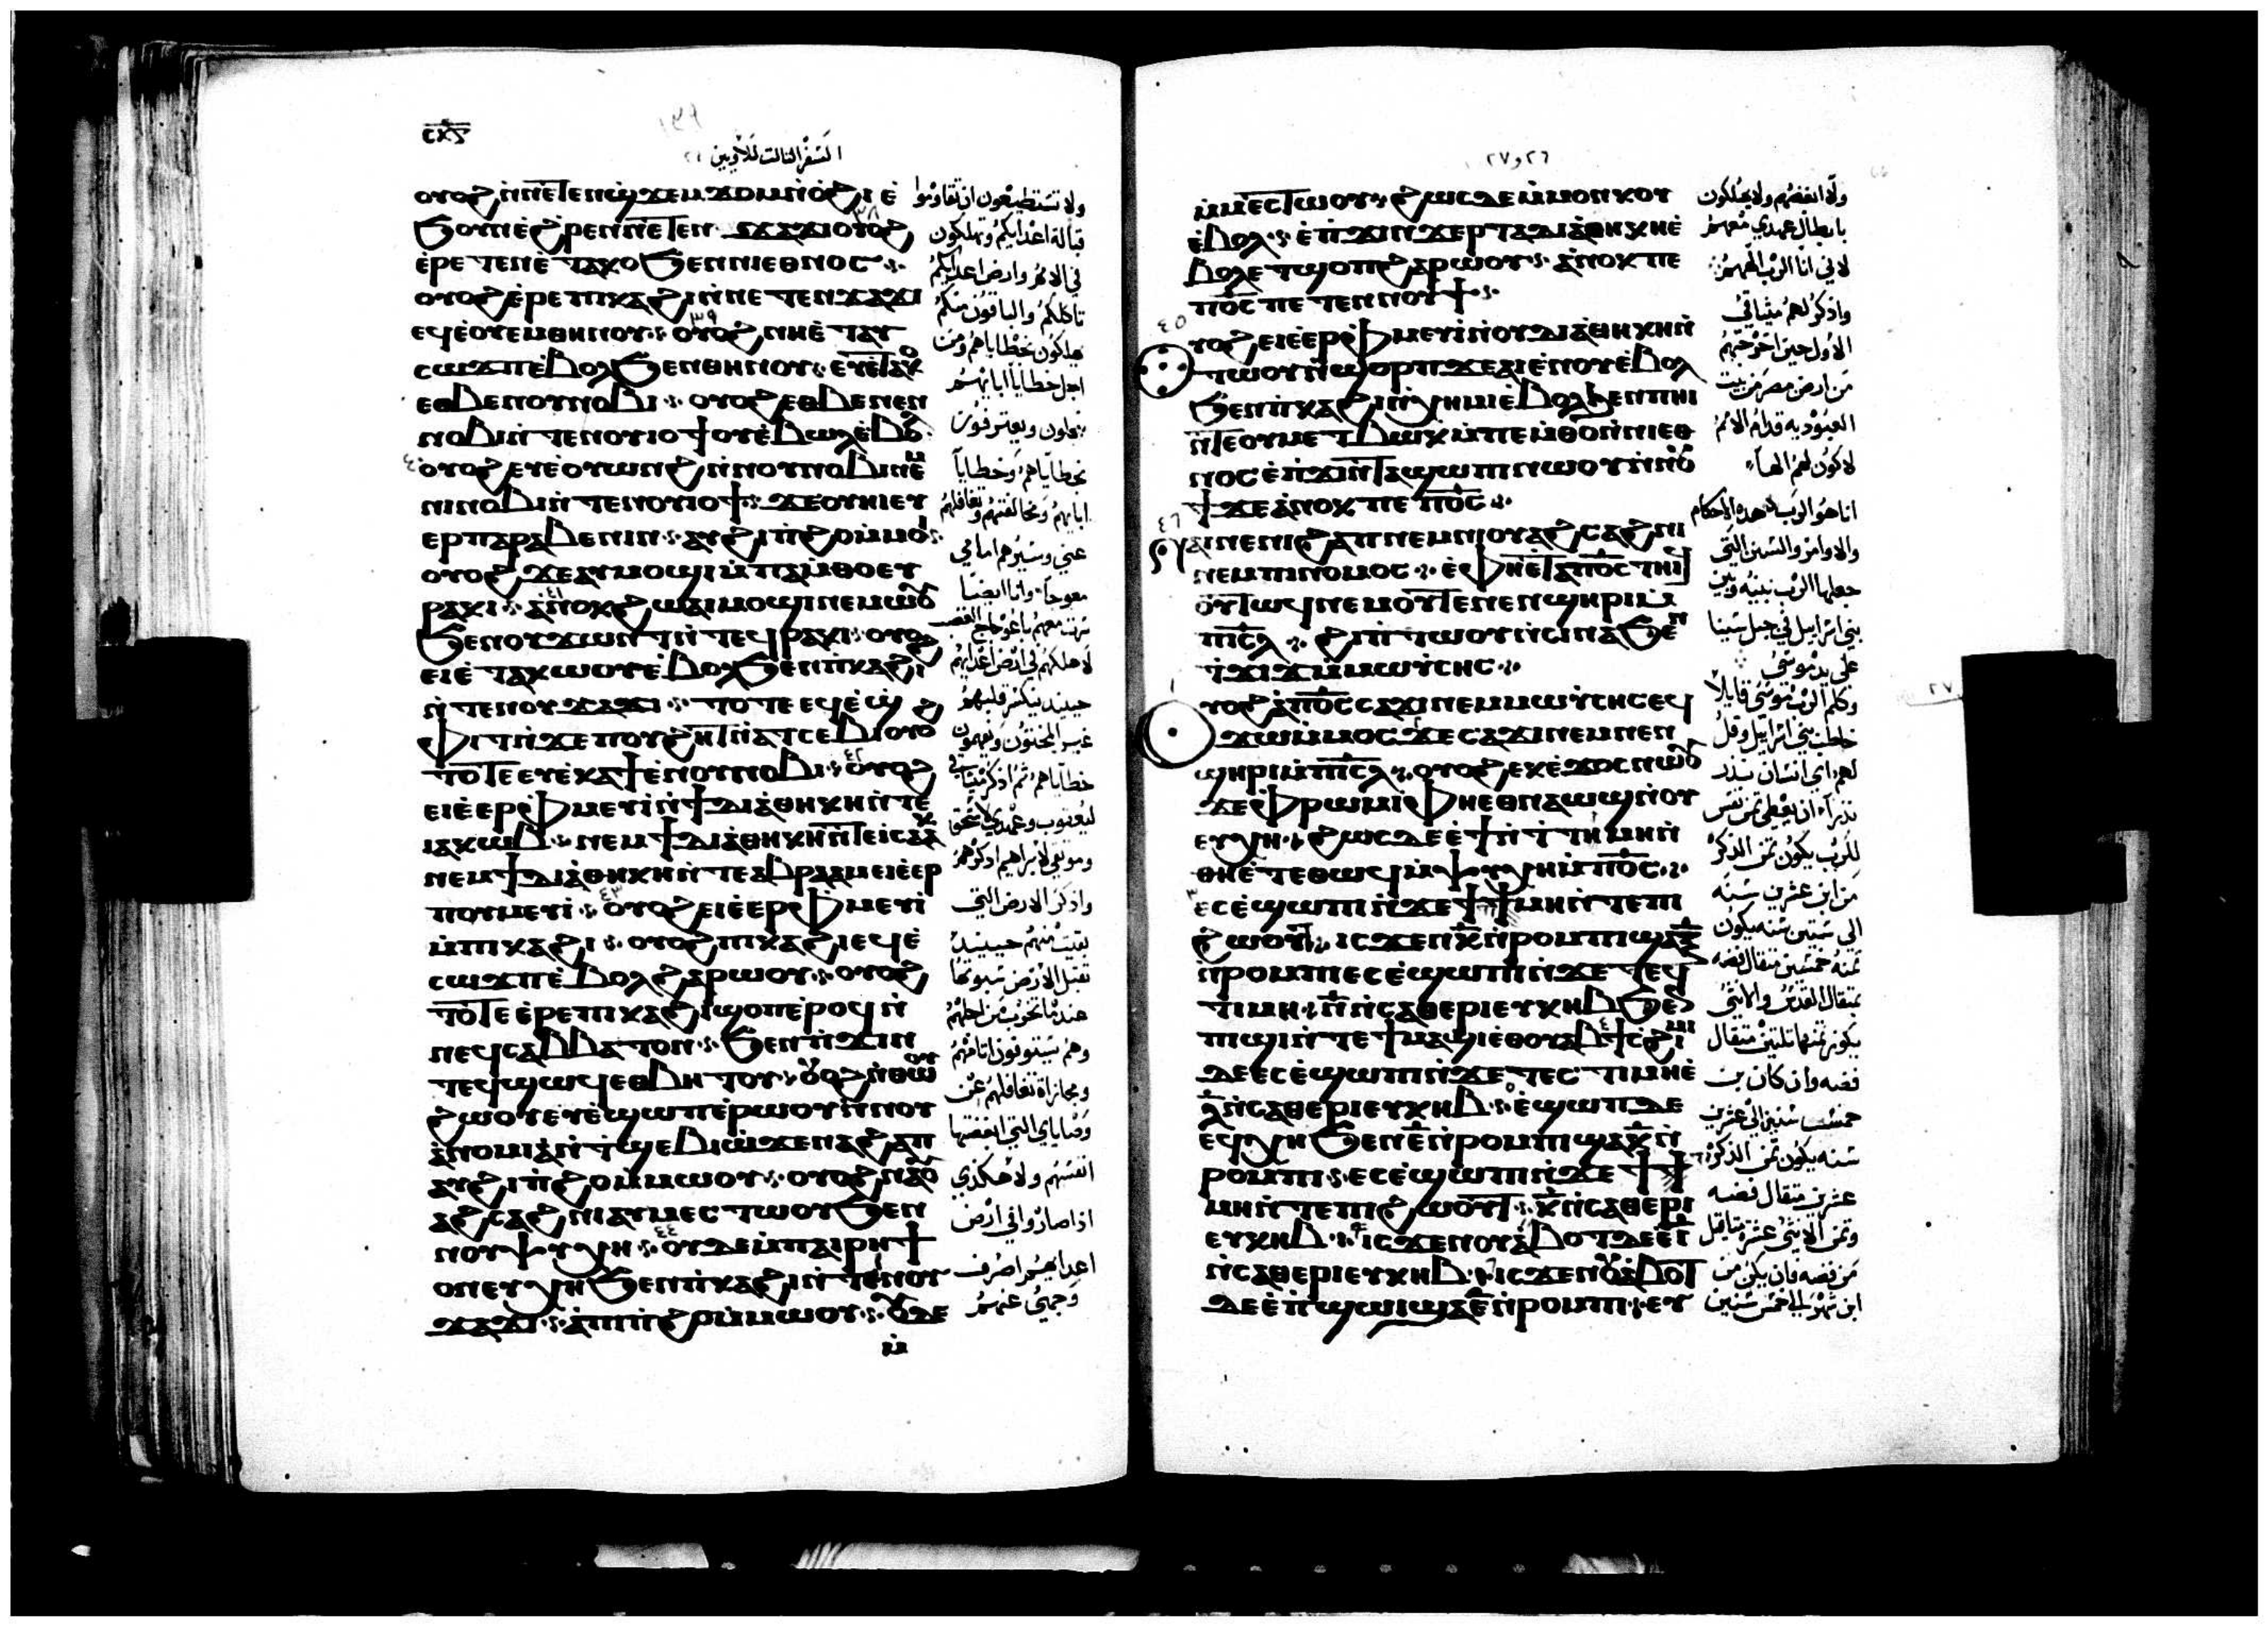 ⲥⲕⲋ
السفر الثالث للاويين
ⲟⲩⲟϩ ⲛ̀ⲛⲉⲧⲉⲛϣϫⲉⲙϫⲟⲙ ⲛ̀ⲟ̀ϩⲓ ⲉ̀
ϧⲟⲩⲛ ⲉ̀ϩⲣⲉⲛ ⲛⲉⲧⲉⲛ ϫⲁϫⲓ ⲟⲩⲟϩ
ⲉ̀ⲣⲉⲧⲉⲛⲉ̀ⲧⲁⲕⲟ ϧⲉⲛ ⲛⲓⲉⲑⲛⲟⲥ
ⲟⲩⲟϩ ⲉ̀ⲣⲉ ⲡⲓⲕⲁϩⲓ ⲛ̀ⲛⲉⲧⲉⲛϫⲁϫⲓ
ⲉϥⲉ̀ⲟⲩⲉⲙ ⲑⲏⲛⲟⲩ ⲟⲩⲟϩ ⲛⲏ ⲉ̀ⲧⲁⲩ
ⲥⲱϫⲡ ⲉ̀ⲃⲟⲗ ϧⲉⲛ ⲑⲏⲛⲟⲩ ⲉⲩⲉ̀ⲧⲁⲕⲟ
ⲉⲑⲃⲉ ⲛⲟⲩⲛⲟⲃⲓ ⲟⲩⲟϩ ⲉⲑⲃⲉ ⲛⲉⲛ
ⲛⲟⲃⲓ ⲛ̀ⲧⲉ ⲛⲟⲩⲓⲟϯ ⲟⲩⲉ̀ⲃⲱⲗ ⲉ̀ⲃⲟⲗ
ⲟⲩⲟϩ ⲉⲩⲉ̀ⲟⲩⲱⲛϩ ⲛ̀ⲛⲟⲩⲛⲟⲃⲓ ⲛⲉⲙ
ⲛⲓⲛⲟⲃⲓ ⲛ̀ⲧⲉ ⲛⲟⲩⲓⲟϯ ϫⲉ ⲟⲩⲏⲓ ⲉⲩ
ⲉⲣⲡⲁⲣⲁⲃⲉⲛⲓⲛ ⲁⲩϩⲓⲡ̀ϩⲟ ⲙ̀ⲙⲟⲓ
ⲟⲩⲟϩ ϫⲉ ⲁⲩⲙⲟϣⲓ ⲙ̀ⲡⲁⲙ̀ⲑⲟ ⲉⲩ
ⲣⲁⲕⲓ ⲁ̀ⲛⲟⲕ ϩⲱ ⲁⲓⲙⲟϣⲓ ⲛⲉⲙⲱⲟⲩ
ϧⲉⲛ ⲟⲩϫⲱⲛⲧ ⲛ̀ⲧⲉϥⲣⲁⲕⲓ ⲟⲩⲟϩ
ⲉⲓⲉ̀ⲧⲁⲕⲱⲟⲩ ⲉ̀ⲃⲟⲗ ϧⲉⲛ ⲡ̀ⲕⲁϩⲓ
ⲛ̀ⲧⲉ ⲛⲟⲩϫⲁϫⲓ ⲧⲟⲧⲉ ⲉϥⲉ̀ϣ
ⲫⲓⲧ ⲛ̀ϫⲉ ⲡⲟⲩϩⲏⲧ ⲛ̀ⲁⲧⲥⲉⲃⲓ ⲟⲩⲟϩ
ⲧⲟⲧⲉ ⲉⲩⲉ̀ⲕⲁϯ ⲉ̀ⲛⲟⲩⲛⲟⲃⲓ ⲟⲩⲟϩ
ⲉⲓⲉ̀ⲉⲣⲫ̀ⲙⲉⲩⲓ̀ ⲛ̀ϯⲇⲓⲁ̀ⲑⲏⲕⲏ ⲛ̀ⲧⲉ
ⲓⲁⲕⲱⲃ ⲛⲉⲙ ϯⲇⲓⲁ̀ⲑⲏⲕⲏ ⲛ̀ⲧⲉ ⲓⲥⲁⲁⲕ
ⲛⲉⲙ ϯⲇⲓⲁ̀ⲑⲏⲕⲏ ⲛ̀ⲧⲉ ⲁⲃⲣⲁⲁⲙ ⲉⲓⲉ̀ⲉⲣ
ⲡⲟⲩⲙⲉⲩⲓ̀ ⲟⲩⲟϩ ⲉⲓⲉ̀ⲉⲣⲫ̀ⲙⲉⲩⲓ̀
ⲙ̀ⲡⲓⲕⲁϩⲓ ⲟⲩⲟϩ ⲡⲓⲕⲁϩⲓ ⲉϥⲉ̀
ⲥⲱϫⲡ ⲉ̀ⲃⲟⲗ ϩⲁⲣⲱⲟⲩ ⲟⲩⲟϩ
ⲧⲟⲧⲉ ⲉ̀ⲣⲉ ⲡⲓⲕⲁϩⲓ ϣⲟⲡ ⲉ̀ⲣⲟϥ ⲛ̀
ⲛⲉϥⲥⲁⲃⲃⲁⲧⲟⲛ ϧⲉⲛ ⲡ̀ϫⲓⲛ
ⲧⲉϥϣⲱϥ ⲉⲑⲃⲏⲧⲟⲩ ⲟⲩⲟϩ ⲛ̀ⲑⲱⲟⲩ
ϩⲱⲟⲩ ⲉⲩⲉ̀ϣⲱⲡ ⲉ̀ⲣⲱⲟⲩ ⲛ̀ⲛⲟⲩ
ⲁ̀ⲛⲟⲙⲓⲁ̀ ⲛ̀ⲧϣⲉⲃⲓⲱ̀ ϫⲉ ⲛⲁϩⲁⲡ
ⲁⲩϩⲓⲡ̀ϩⲟ ⲙ̀ⲙⲱⲟⲩ ⲟⲩⲟϩ ⲛⲁⲟⲩ
ⲁϩⲥⲁϩⲛⲓ ⲁⲩⲙⲉⲥⲧⲱⲟⲩ ϧⲉⲛ
ⲛⲟⲩⲯⲩⲭⲏ ⲟⲩⲇⲉ ⲙ̀ⲡⲁⲓⲣⲏϯ
ⲟⲛ ⲉⲩⲭⲏ ϧⲉⲛ ⲡ̀ⲕⲁϩⲓ ⲛ̀ⲧⲉ ⲛⲟⲩ
ϫⲁϫⲓ ⲁ̀ⲡⲓϩⲓⲡ̀ϩⲟ ⲙ̀ⲙⲱⲟⲩ ⲟⲩⲇⲉ
ⲙ̀ⲡⲓ
ولا تستطيعون ان تقاوموا
قبالة اعدايكم وتهلكون
في الامم وارض اعدايكم
تاكلكم والباقون منكم
يهلكون بخطاياهم ومن
اجل خطايا ابايهم
ينحلون ويعترفون
بخطاياهم وخطايا
ابايهم ومخالفتهم وتغافلهم
عني وسيرهم امامي
معوجا وانا ايضا
سرت معهم باعوجاج الغضب
لاهلكهم في ارض اعدايهم
حينيذ ينكسر قلبهم
غير المختون ويفهمون
خطاياهم ثم اذكر ميثاقي
ليعقوب وعهدي لاسحق
وموثقي لابراهيم اذكرهم
واذكر الارض التي
بقيت منهم حينيذ
تقبل الارض سبوتها
عندما تخرب من اجلهم
وهم يستوفون اثامهم
ومجازاة تغافلهم عن
وصاياي التي ابغضتها
انفسهم ولا هكذي
اذا صاروا في ارض
اعدايهم اصرف
وجهي عنهم
٢٦ و٢٧
ⲙ̀ⲙⲉⲥⲧⲱⲟⲩ ϩⲱⲥⲇⲉ ⲙ̀ⲙⲟⲛⲕⲟⲩ
ⲉ̀ⲃⲟⲗ ⲉ̀ⲡ̀ϫⲓⲛϫⲉⲣ ⲧⲁⲇⲓⲁ̀ⲑⲏⲕⲏ ⲉ̀
ⲃⲟⲗ ⲉⲧϣⲟⲡ ϩⲁⲣⲱⲟⲩ ⲁ̀ⲛⲟⲕ ⲡⲉ
ⲡ⳪ ⲡⲉⲧⲉⲛⲛⲟⲩϯ
ⲟⲩⲟϩ ⲉⲓⲉ̀ⲉⲣⲫ̀ⲙⲉⲩⲓ̀ ⲛ̀ⲟⲩⲇⲓⲁ̀ⲑⲏⲕⲏ ⲛ̀
ⲧⲱⲟⲩ ⲛ̀ϣⲟⲣⲡ ϫⲉ ⲁⲓⲉ̀ⲛⲟⲩ ⲉ̀ⲃⲟⲗ
ϧⲉⲛ ⲡ̀ⲕⲁϩⲓ ⲛ̀ⲭⲏⲙⲓ ⲉ̀ⲃⲟⲗ ϧⲉⲛ ⲡⲏⲓ
ⲛ̀ⲧⲉ ⲟⲩⲙⲉⲧⲃⲱⲕ ⲙ̀ⲡⲉⲙ̀ⲑⲟ ⲛ̀ⲛⲓⲉⲑ
ⲛⲟⲥ ⲉ̀ⲡ̀ϫⲓⲛⲧⲁϣⲱⲡⲓ ⲛⲱⲟⲩ ⲛ̀ⲛⲟⲩ
ϯ ϫⲉ ⲁ̀ⲛⲟⲕ ⲡⲉ ⲡ⳪
ⲛⲁⲓ ⲛⲉ ⲛⲓϩⲁⲡ ⲛⲉⲙ ⲛⲓⲟⲩⲁϩⲥⲁϩⲛⲓ
ⲛⲉⲙ ⲡⲓⲛⲟⲙⲟⲥ ⲉ̀ⲫⲏ ⲉ̀ⲧⲁ ⲡ⳪ ⲧⲏⲓϥ
ⲟⲩⲧⲱϥ ⲛⲉⲙ ⲟⲩⲧⲉ ⲛⲉⲛϣⲏⲣⲓ ⲙ̀
ⲡⲓⲥⲗ ϩⲓ ⲡ̀ⲧⲱⲟⲩ ⲛ̀ⲥⲓⲛⲁ ϧⲉⲛ
ⲧϫⲓϫ ⲙ̀ⲙⲱⲩ̀ⲥⲏⲥ
ⲟⲩⲟϩ ⲁ̀ⲡ⳪ ⲥⲁϫⲓ ⲛⲉⲙ ⲙⲱⲩ̀ⲥⲏⲥ ⲉϥ
ϫⲱ ⲙ̀ⲙⲟⲥ ϫⲉ ⲥⲁϫⲓ ⲛⲉⲙ ⲛⲉⲛ
ϣⲏⲣⲓ ⲙ̀ⲡⲓⲥⲗ ⲟⲩⲟϩ ⲉⲕⲉ̀ϫⲟⲥ ⲛⲱⲟⲩ
ϫⲉ ⲫ̀ⲣⲱⲙⲓ ⲫⲏ ⲉⲑⲛⲁⲱϣ ⲛ̀ⲟⲩ
ⲉⲩⲭⲏ ϩⲱⲥⲇⲉ ⲉ̀ϯ ⲛ̀ⲧ̀ⲧⲓⲙⲏ ⲛ̀
ⲑⲏ ⲉ̀ⲧⲉ ⲑⲱϥ ⲙ̀ⲯⲩⲭⲏ ⲙ̀ⲡ⳪
ⲉⲥⲉ̀ϣⲱⲡⲓ ⲛ̀ϫⲉ ϯϯⲙⲏ ⲛ̀ⲧⲉ ⲡⲓ
ϩⲱⲟⲩⲧ ⲓⲥϫⲉⲛ ⲕ̅ ⲛ̀ⲣⲟⲙⲡⲓ ϣⲁ ⲝ̅
ⲛ̀ⲣⲟⲙⲡⲓ ⲉⲥⲉ̀ϣⲱⲡⲓ ⲛ̀ϫⲉ ⲧⲉϥ
ⲧⲓⲙⲏ ⲛ̅ ⲛ̀ⲥⲁⲑⲉⲣⲓ ⲉⲩⲕⲏⲃ ϧⲉⲛ
ⲡϣⲓ ⲛ̀ⲧⲉ ϯⲙⲁϣⲓ ⲉⲑⲟⲩⲁⲃ ϯⲥϩⲓⲙⲓ
ⲇⲉ ⲉⲥⲉ̀ϣⲱⲡⲓ ⲛ̀ϫⲉ ⲧⲉⲥⲧⲓⲙⲏ ⲉ̀
ⲗ̅ ⲛ̀ⲥⲁⲑⲉⲣⲓ ⲉⲩⲕⲏⲃ ⲉ̀ϣⲱⲡ ⲇⲉ
ⲉϥⲭⲏ ϧⲉⲛ ⲉ̅ ⲛ̀ⲣⲟⲙⲡⲓ ϣⲁ ⲕ̅ ⲛ̀
ⲣⲟⲙⲡⲓ ⲉⲥⲉ̀ϣⲱⲡⲓ ⲛ̀ϫⲉ ϯϯ
ⲙⲏ ⲛ̀ⲧⲉ ⲡⲓϩⲱⲟⲩⲧ ⲕ̅ ⲛ̀ⲥⲁⲑⲉⲣⲓ
ⲉⲩⲕⲏⲃ ⲓⲥϫⲉⲛ ⲟⲩⲁ̀ⲃⲟⲧ ⲇⲉ ⲉ̀ⲓ̅
ⲛ̀ⲥⲁⲑⲉⲣⲓ ⲉⲩⲕⲏⲃ ⲓⲥϫⲉⲛ ⲟⲩⲁ̀ⲃⲟⲧ
ⲇⲉ ⲉ̀ⲡ̀ϣⲱⲓ ϣⲁ ⲉ̅ ⲛ̀ⲣⲟⲙⲡⲓ ⲉⲩ
ولا ابغضهم ولا يهلكون
بابطال عهدي معهم
لاني انا الرب الههم
واذكر لهم ميثاقي
الاول حين اخرجتهم
من ارض مصر من بيت
العبودية قدام الامم
لاكون لهم الها
انا هو الرب هذه الاحكام
والاوامر والسنن التي
جعلها الرب بينه وبين
بني اسراييل في جبل سينا
على يد موسى
وكلم الرب موسى قايلا
خاطب بني اسراييل وقل
لهم اي انسان نذر
نذرا ان يعطي ثمن نفس
للرب يكون ثمن الذكر
من ابن عشرين سنه
الى ستين سنه يكون
ثمنه خمسين مثقال فضه
بمثقال القدس والانثى
يكون ثمنها ثلثين مثقال
فضه وان كان من
خمس سنين الى عشرين
سنه يكون ثمن الذكر
عشرين مثقال فضه
وثمن الانثى عشرة مثاقيل
من فضه فان يكن من
ابن شهر الى خمس سنين
٢٧